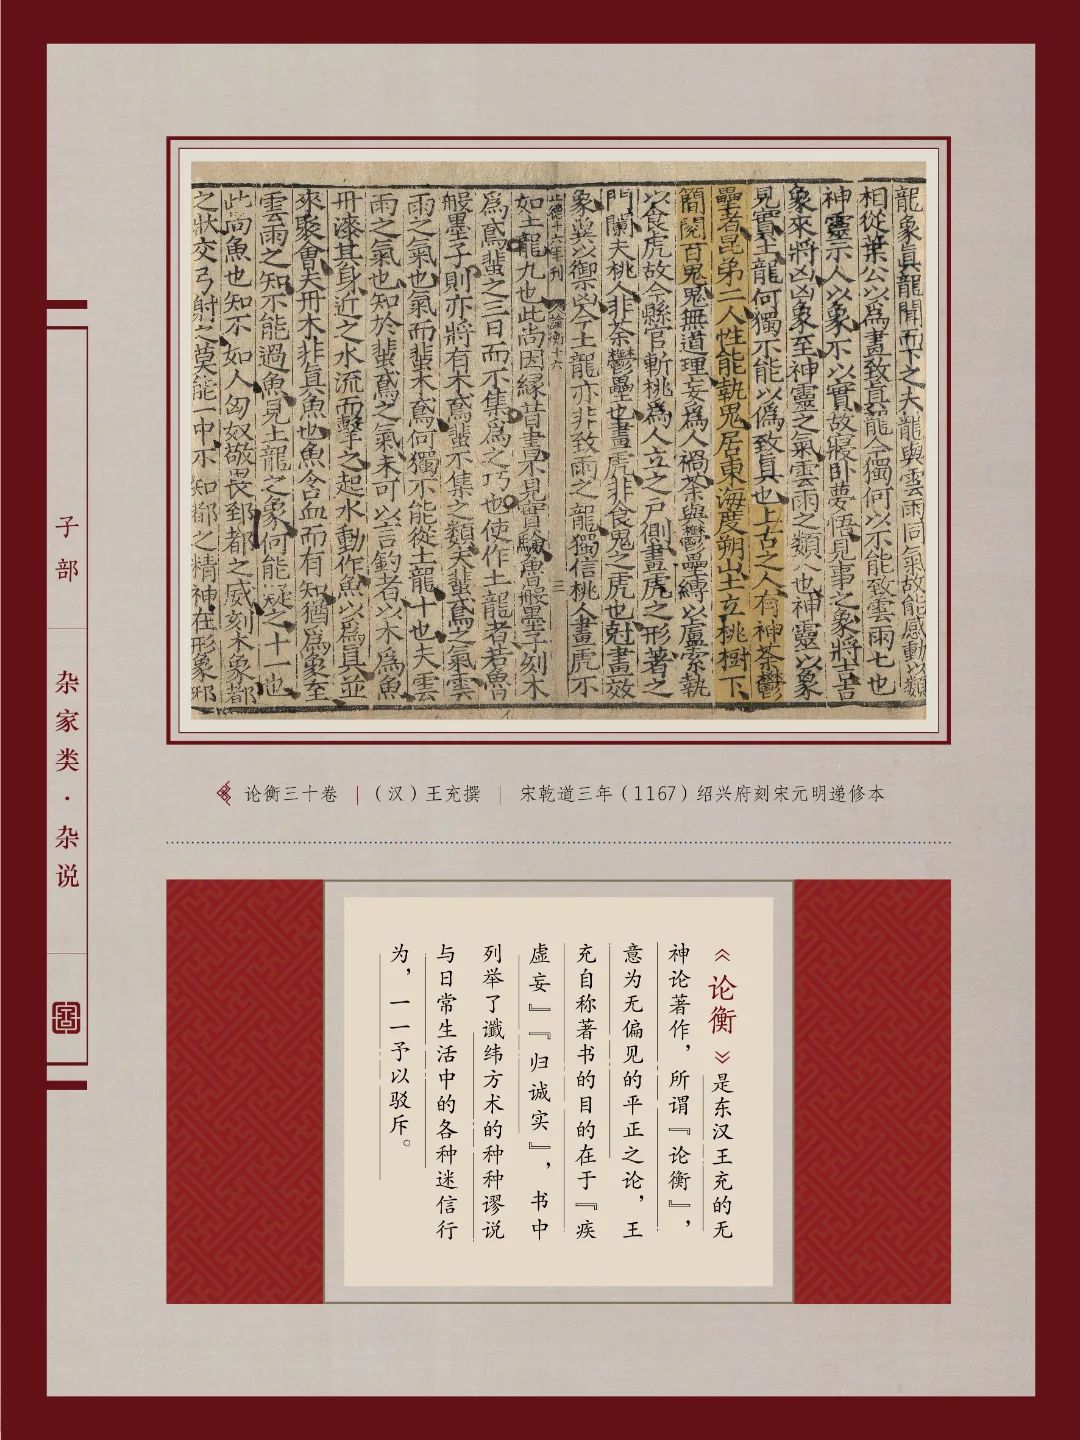 龍象真龍聞而下之夫龍與雲雨同氣故能感動以類
相從葉公以為畫致真龍今獨何以不能致雲雨七也
神靈示人以象不以實故寢臥夢悟見事之象將吉
象來將凶凶象至神靈之氣雲雨之類也神靈以象
見實土龍何獨不能以偽致真也上古之人有神荼鬱
壘者昆弟二人性能執鬼居東海度朔山上立桃樹下
簡閱百鬼鬼無道理妄為人禍荼與鬱壘縛以盧索執
以食虎故今縣官斬桃為人立之戶側畫虎之形著之
門闌夫桃人非荼鬱壘也畫虎非食鬼之虎也剋畫效
象冀以御凶今土龍亦非致雨之龍獨信桃人畫虎不
正德十六年刊 論衡十六 三
知土龍九也此尚因緣昔書不見實驗魯般墨子刻木
為鳶蜚之三日而不集為之巧也使作土龍者若魯
般墨子則亦將有木鳶蜚不集之類夫蜚鳶之氣雲
雨之氣也氣而蜚木鳶何獨不能從土龍十也夫雲
雨之氣也知於蜚鳶之氣未可以言釣者以木為魚
丹漆其身近之水流而擊之起水動作魚以為真並
來聚會夫丹木非真魚也魚含血而有知猶為象至
雲雨之知不能過魚見土龍之象何能疑之十一也
此尚魚也知不如人匈奴敬畏郅都之威刻木象都
之狀交弓射之莫能一中不知都之精神在形象邪
论衡三十卷 | （汉）王充撰 | 宋乾道三年（1167）绍兴府刻宋元明递修本
子部
杂家类·杂说
《论衡》是东汉王充的无
神论著作，所谓『论衡』，
意为无偏见的平正之论，王
充自称著书的目的在于『疾
虚妄』『归诚实』，书中
列举了谶纬方术的种种谬说
与日常生活中的各种迷信行
为，一一予以驳斥。